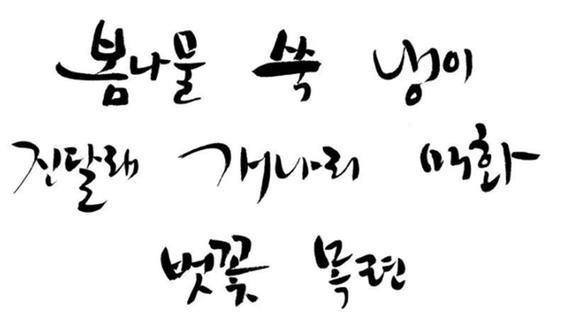 봄나물 쑥 냉이
진달래 개나리 매화
벚꽃 목련